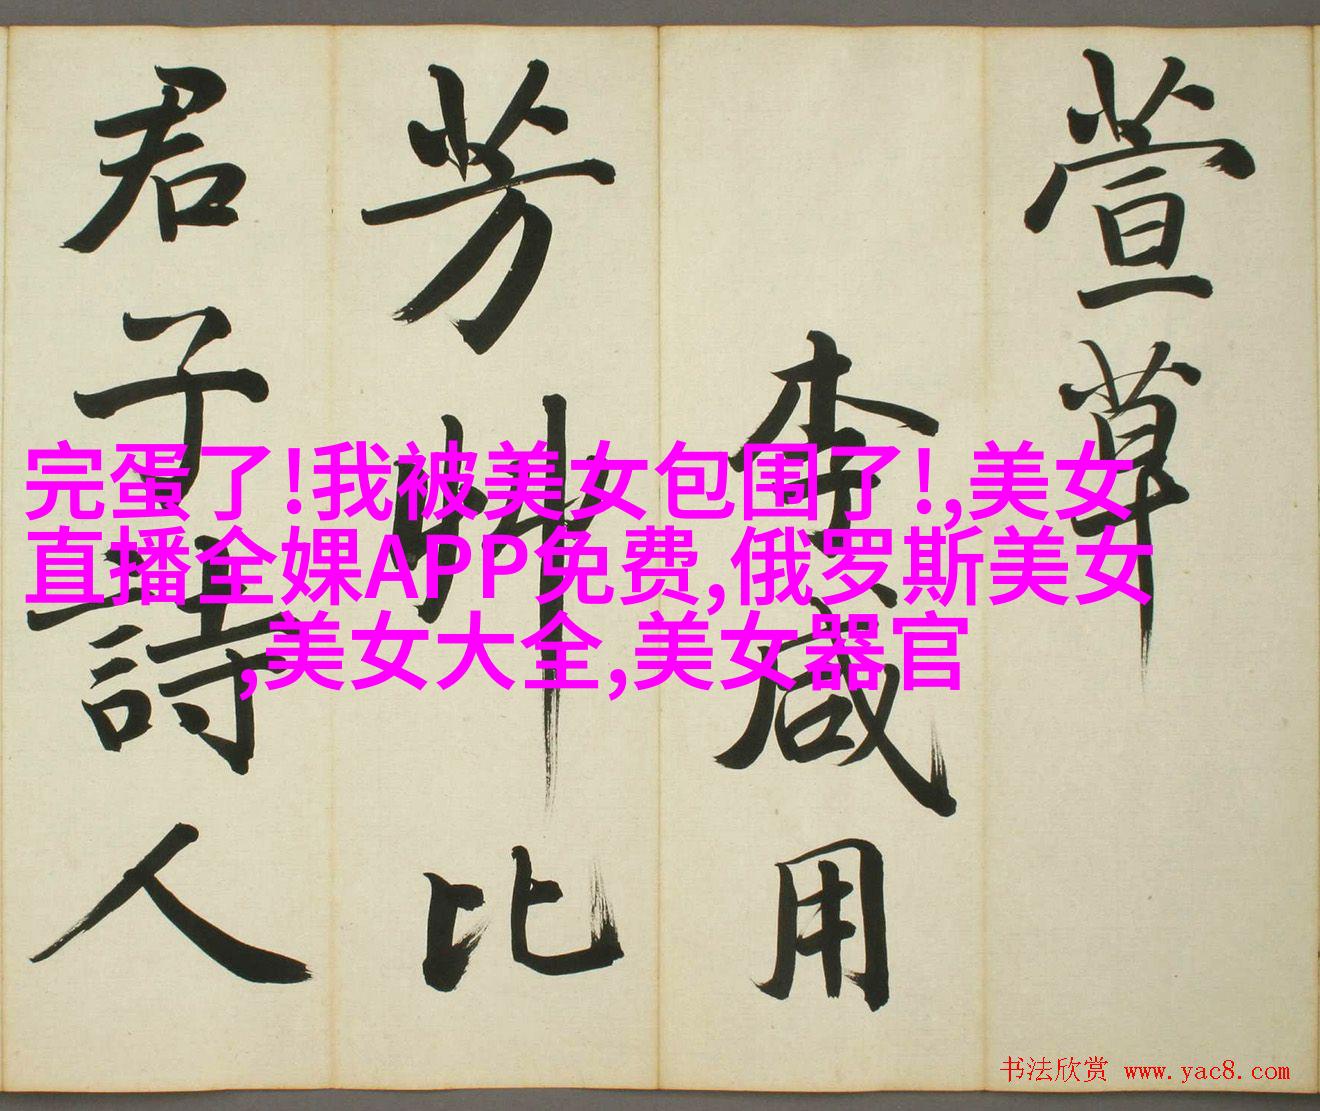 萱草
李咸用
芳艸比
君子詩人
完蛋了!我被美女包围了!,美女
直播全婐APP免费,俄罗斯美女
,美女大全,美女器官
书法欣赏 www.yac8.com